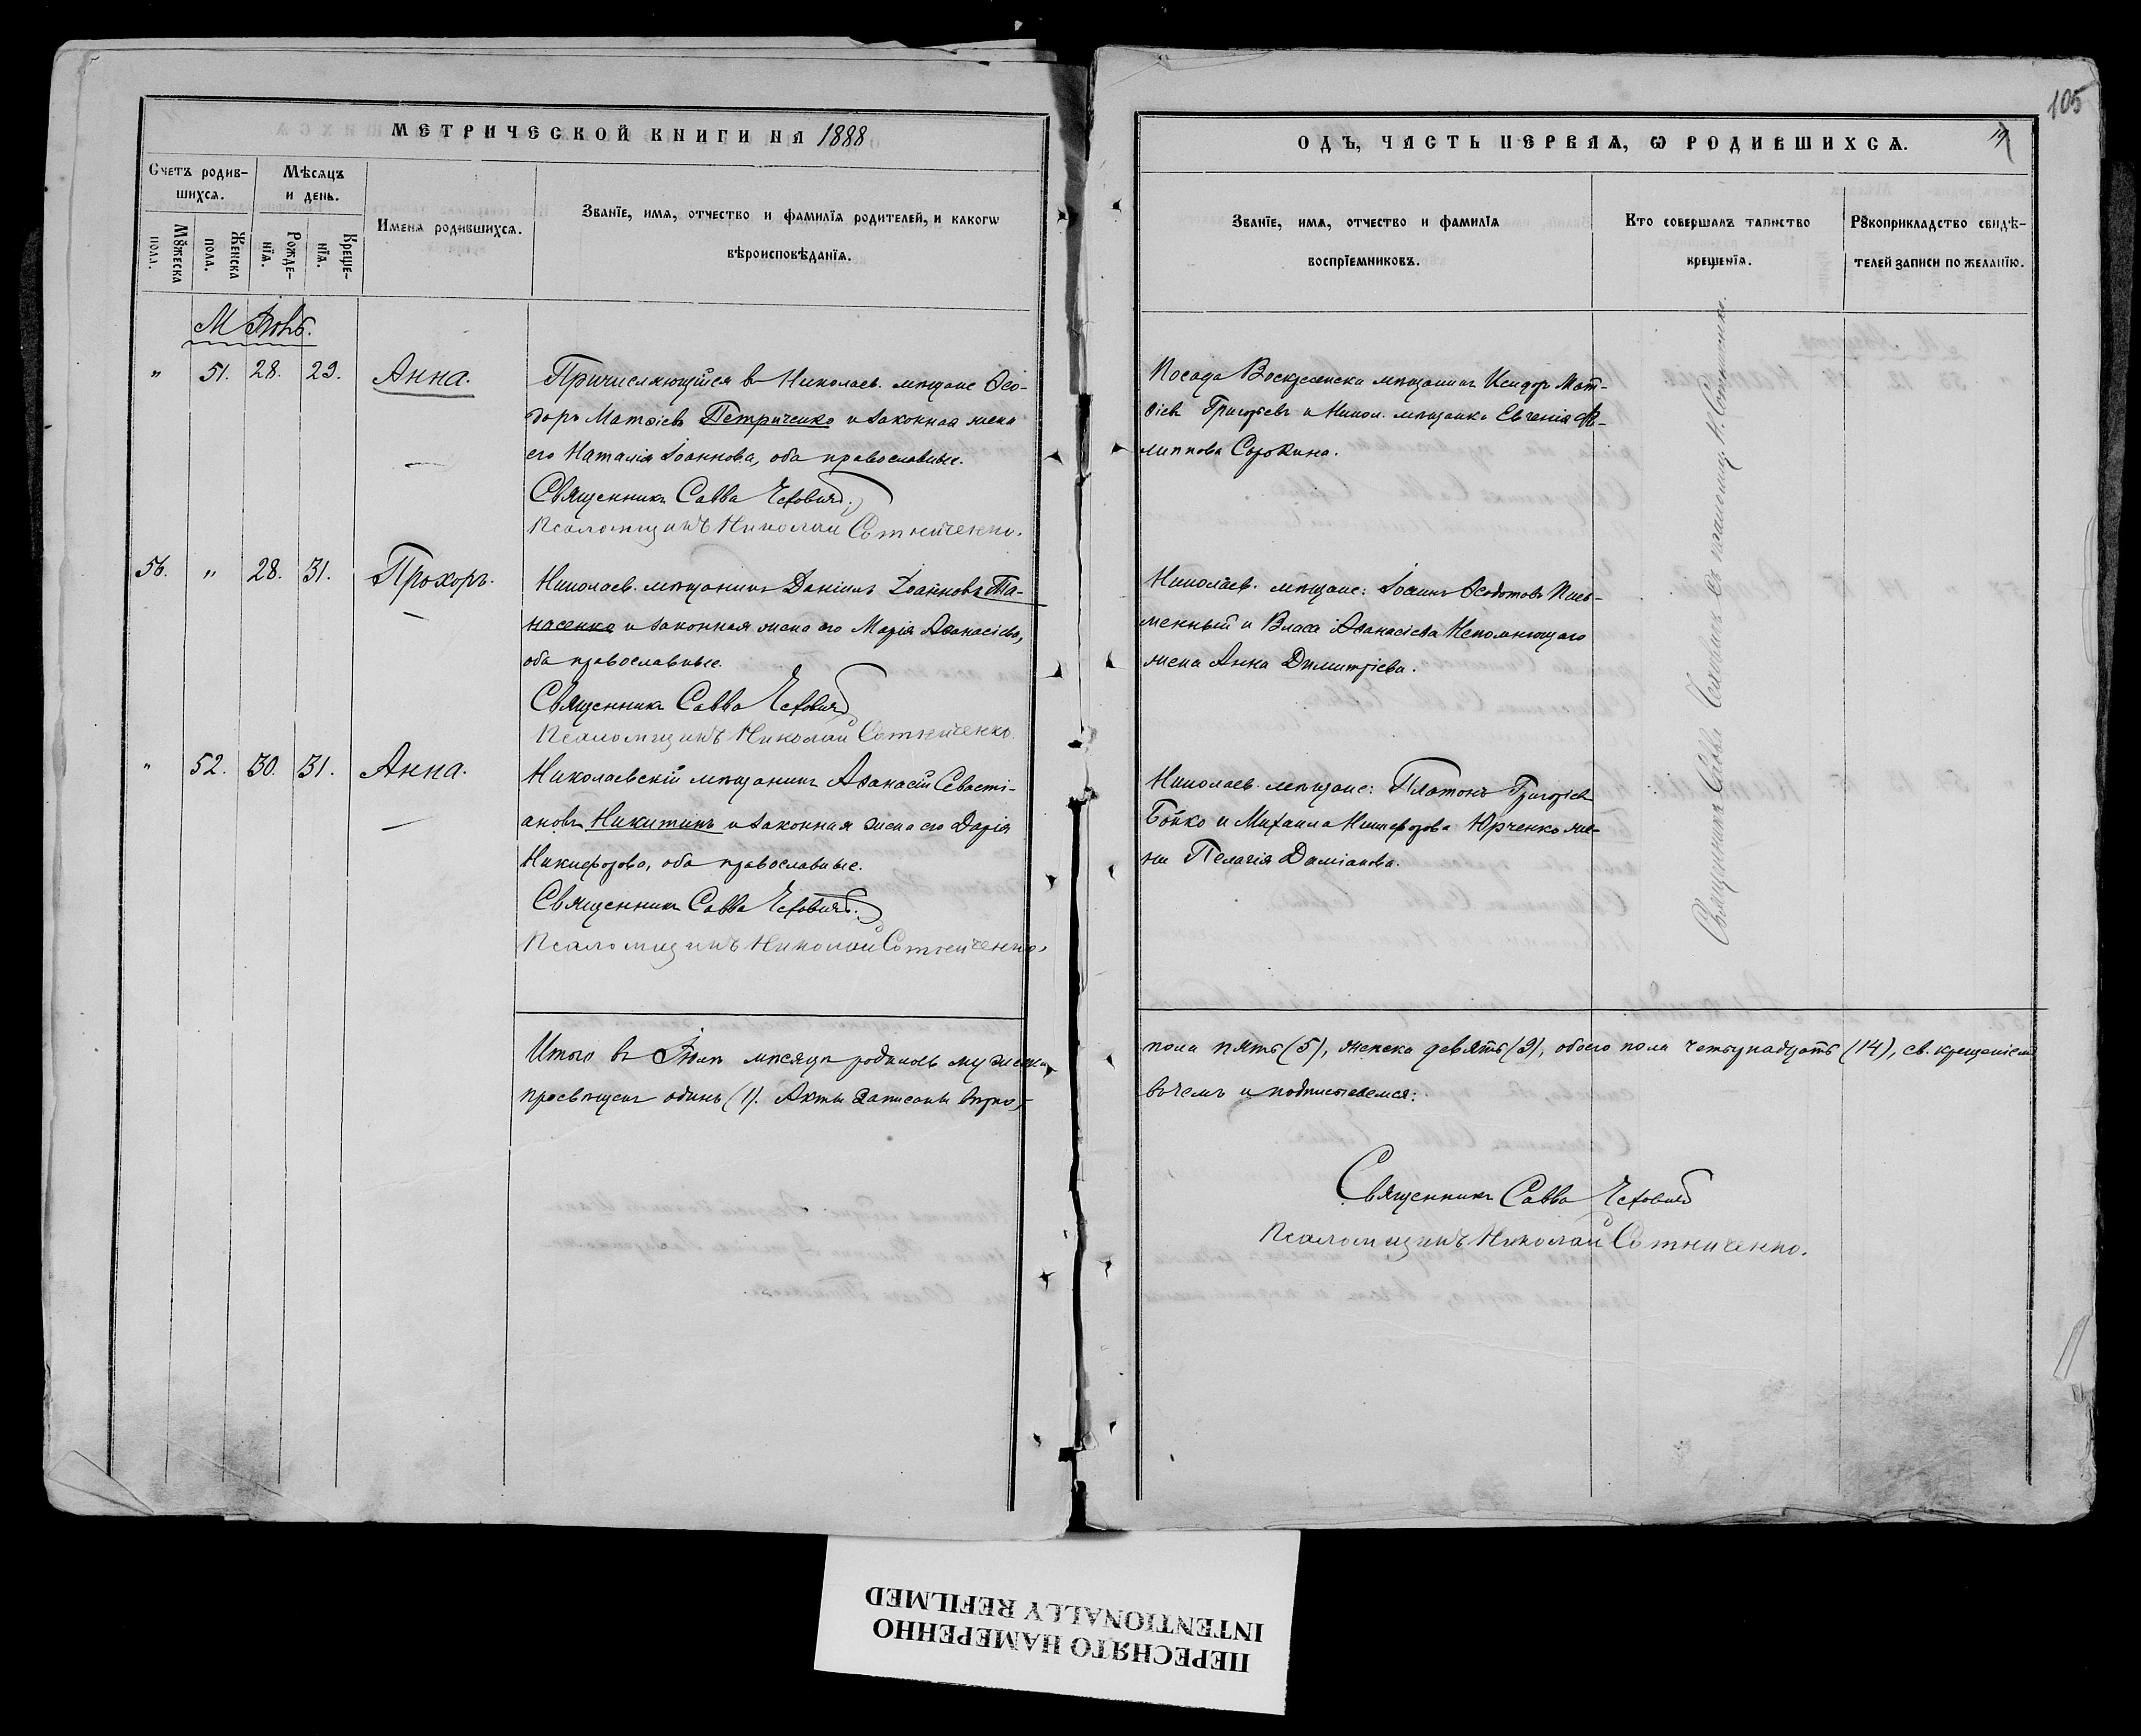 105
МЕТРИЧЕСКОЙ КНИГИ НА 1888
Счетъ родившихсѧ.
Мꙋжеска пола.
Женска пола.
Мѣсѧцъ и день.
Рожденїѧ.
Крещенїѧ.
Имена родившихсѧ.
Званїе, имѧ, отчество и фамилїѧ родителей, и какогѡ
вѣроисповѣданїѧ.
М Іюль.
" 51. 28. 29. Анна.
Причисляющійся въ Николаев. мѣщане Ѳео-
доръ Матѳіевъ Петриченко и законная жена
его Наталія Іоаннова, оба православные.
Священникъ Савва
Псаломщикъ Николай Сотниченко.
56. " 28. 31. Прохоръ.
Николаев. мѣщанинъ Даніилъ Іоанновъ Та-
насенко и законная жена его Марія Аѳанасіева,
оба православные.
Священникъ Савва
Псаломщикъ Николай Сотниченко.
" 52. 30. 31. Анна.
Николаевскій мѣщанинъ Аѳанасій Севасті-
ановъ Никитинъ и законная жена его Дарія
Никифорова, оба православные.
Священникъ Савва
Псаломщикъ Николай Сотниченко.
Итого въ Іюлѣ мѣсяцѣ родилось мужеска
просвѣщенъ одинъ (1). Акты записаны вѣрно,
ОДЪ, ЧАСТЬ ПЕРВАѦ, Ѡ РОДИВШИХСѦ.
Званїе, имѧ, отчество и фамилїѧ
воспрїемниковъ.
Кто совершалъ таинство
крещенїѧ.
Рꙋкоприкладство свидѣ-
телей записи по желанїю.
Посада Воскресенска мѣщанинъ Исидоръ Мат-
ѳіевъ Григорьевъ и Никол. мѣщанка Евгенія Фи-
липпова Сорокина.
Николаев. мѣщане: Іоаннъ Ѳеодотовъ Пись-
менный и Власа Аѳанасіева Непомнющаго
жена Анна Димитріева.
Николаев. мѣщане: Платонъ Григорьевъ
Бойко и Михаила Никифорова Юрченко же-
на Пелагія Даміанова.
Священникъ Савва съ псаломщ. Н. Сотниченко.
пола пять (5), женска девять (9), обоего пола четырнадцать (14), св. крещеніемъ
въ чемъ и подписываемся:
Священникъ Савва
Псаломщикъ Николай Сотниченко.
ПЕРЕСНЯТО НАМЕРЕННО
INTENTIONALLY REFILMED